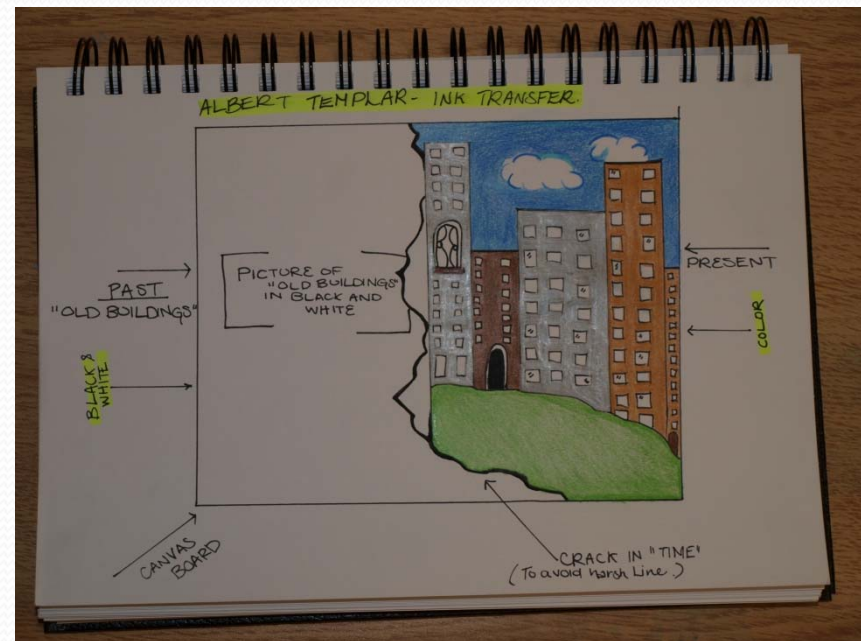 ALBERT TEMPLAR - INK TRANSFER.
PAST
"OLD BUILDINGS"
BLACK &
WHITE
PICTURE OF
"OLD BUILDINGS"
IN BLACK AND
WHITE
PRESENT
COLOR
CANVAS
BOARD
CRACK IN "TIME"
(To avoid harsh Line.)